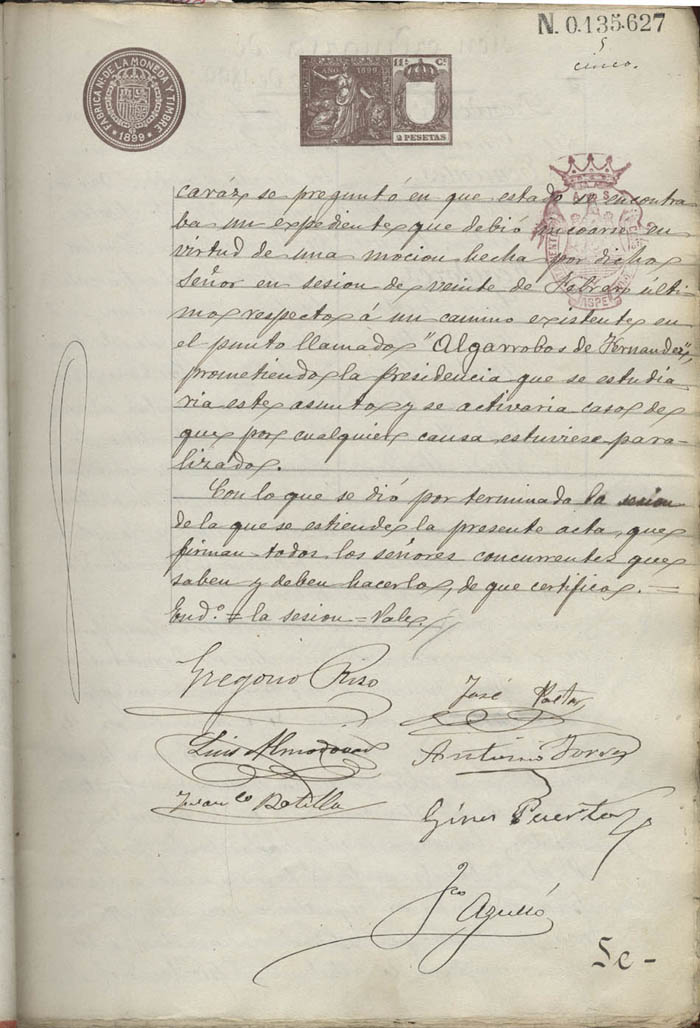 N. 0.135.627
5
cinco.
FABRICA N. DE LA MONEDA Y TIMBRE
1899
AÑO 1899
11ª Cˢ
2 PESETAS
ASPE
caráz se preguntó en que estado se encontra
ba un expediente que debió incoarse en
virtud de una mocion hecha por dicho
Señor en sesion de veinte de Febrero últi
mo respecto á un camino existente en
el punto llamado "Algarrobos de Fernandez",
prometiendo la Presidencia que se estudia
ria este asunto y se activaria caso de
que por cualquier causa estuviese para-
lizado.
Con lo que se dió por terminada la sesion
de la que se estiende la presente acta, que
firman todos los señores concurrentes que
saben y deben hacerlo, de que certifico. =
Endº = la sesion = Vale.
Gregorio Riso
José
Luis Almodovar
Antonio
Franco Botella
Gines Puerto
Fco Agulló
5c-